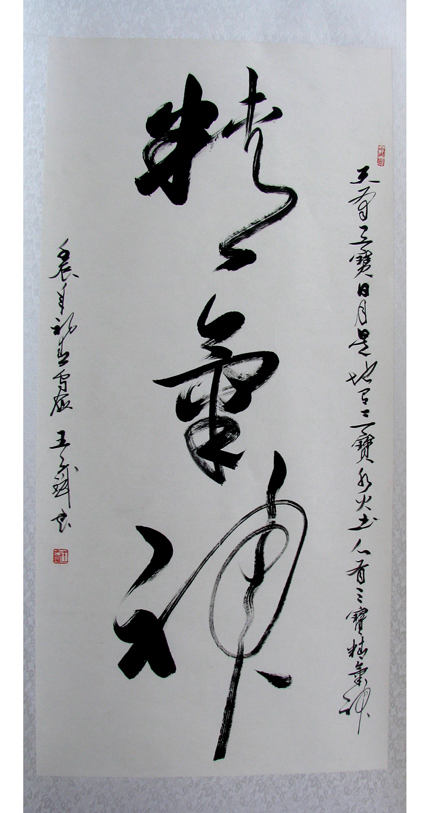 天有三寶日月星地有三寶水火土人有三寶精氣神
精氣神
壬辰年初春 王 书